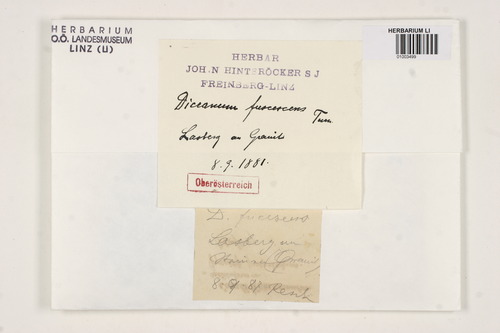 HERBARIUM
O.Ö. LANDESMUSEUM
LINZ (LI)
HERBARIUM LI
HERBAR
JOH. N HINTERÖCKER S J
FREINBERG-LINZ
Dicranum fuscescens Turn
Lasberg an Granit
8.9.1881.
Oberösterreich
D. fuscescens
Lasberg an
Granit
8. 9 81